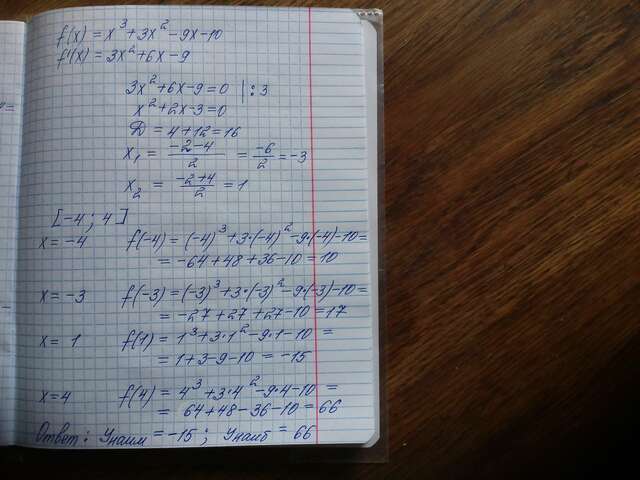 f(x) = x³+3x²-9x-10
f'(x) = 3x²+6x-9
3x²+6x-9=0 |:3
x²+2x-3=0
D = 4+12=16
x₁ = (-2-4)/2 = -6/2 = -3
x₂ = (-2+4)/2 = 1
[-4; 4]
x = -4 f(-4) = (-4)³+3·(-4)²-9·(-4)-10=
= -64+48+36-10=10
x = -3 f(-3) = (-3)³+3·(-3)²-9·(-3)-10=
= -27+27+27-10=17
x = 1 f(1) = 1³+3·1²-9·1-10 =
= 1+3-9-10 = -15
x=4 f(4) = 4³+3·4²-9·4-10 =
= 64+48-36-10=66
Ответ: Yнаим = -15; Yнаиб = 66